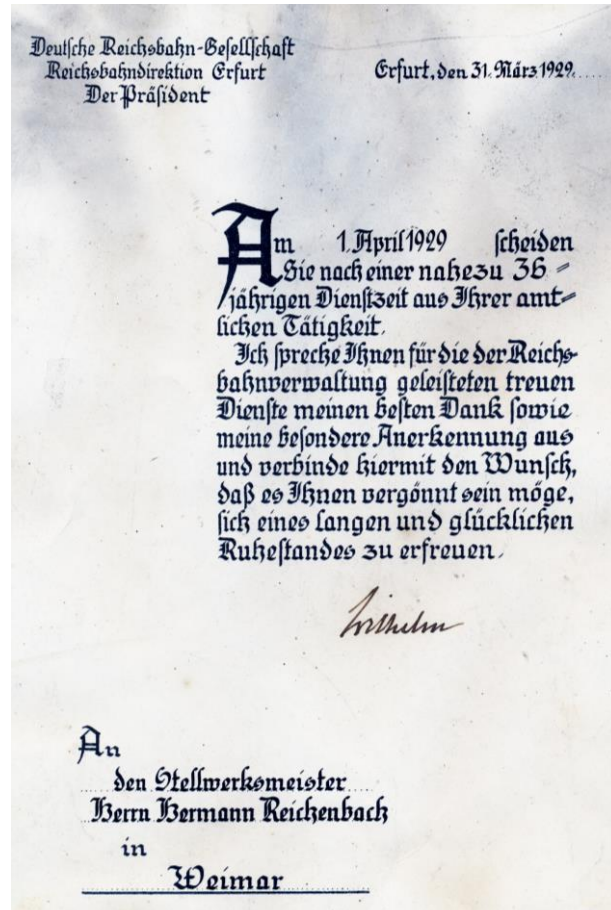 Deutsche Reichsbahn-Gesellschaft
Reichsbahndirektion Erfurt
Der Präsident
Erfurt, den 31. März 1929.
Am 1. April 1929 scheiden
Sie nach einer nahezu 36 =
jährigen Dienstzeit aus Ihrer amt=
lichen Tätigkeit.
Ich spreche Ihnen für die der Reichs-
bahnverwaltung geleisteten treuen
Dienste meinen besten Dank sowie
meine besondere Anerkennung aus
und verbinde hiermit den Wunsch,
daß es Ihnen vergönnt sein möge,
sich eines langen und glücklichen
Ruhestandes zu erfreuen.
Wilhelm
An
den Stellwerksmeister
Herrn Hermann Reichenbach
in
Weimar